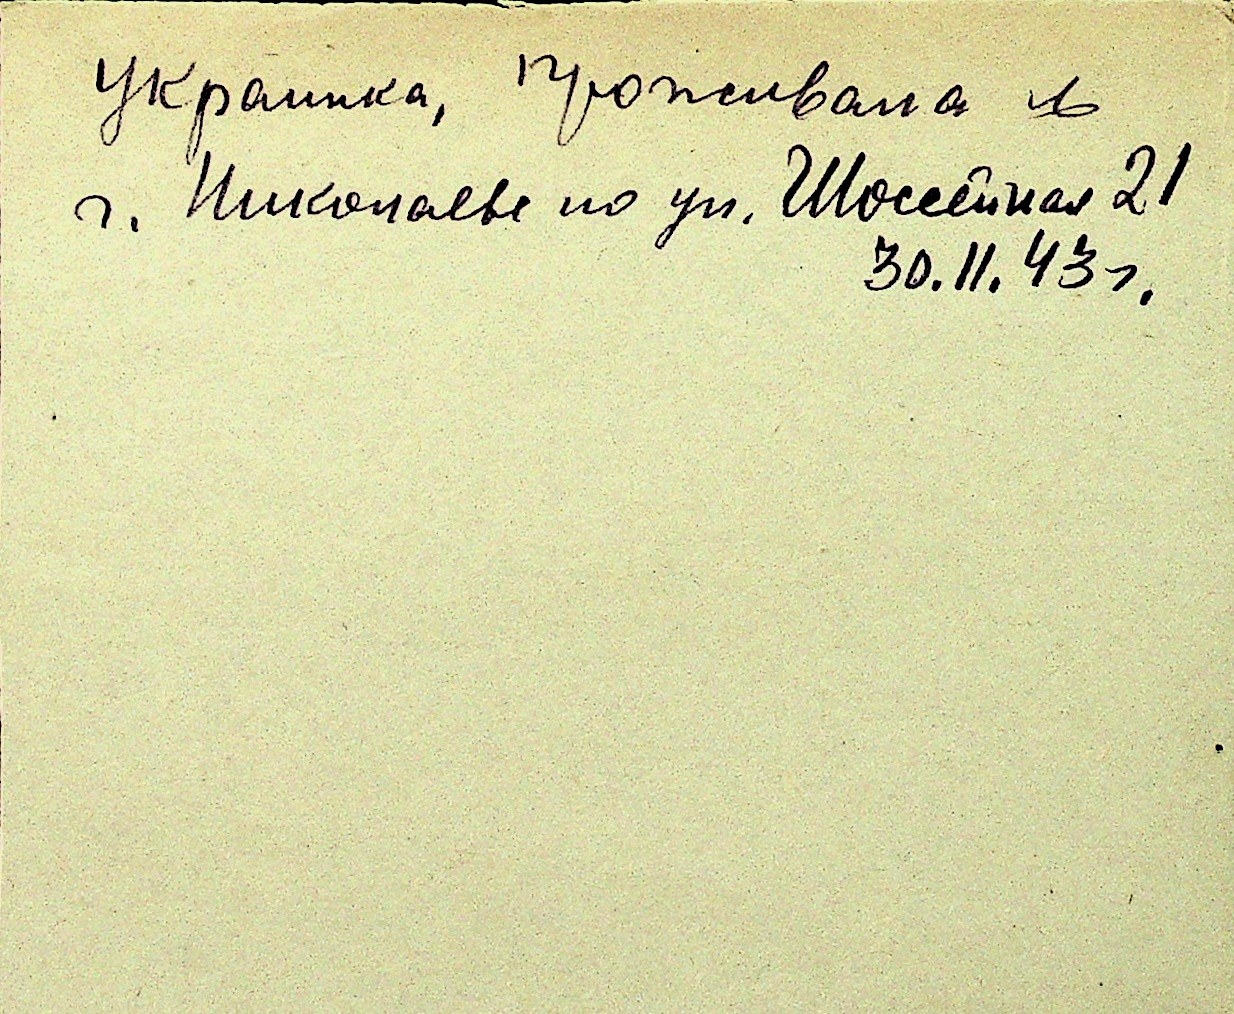 Украинка, проживала в
г. Николаеве по ул. Шоссейная 21
30.11.43 г.